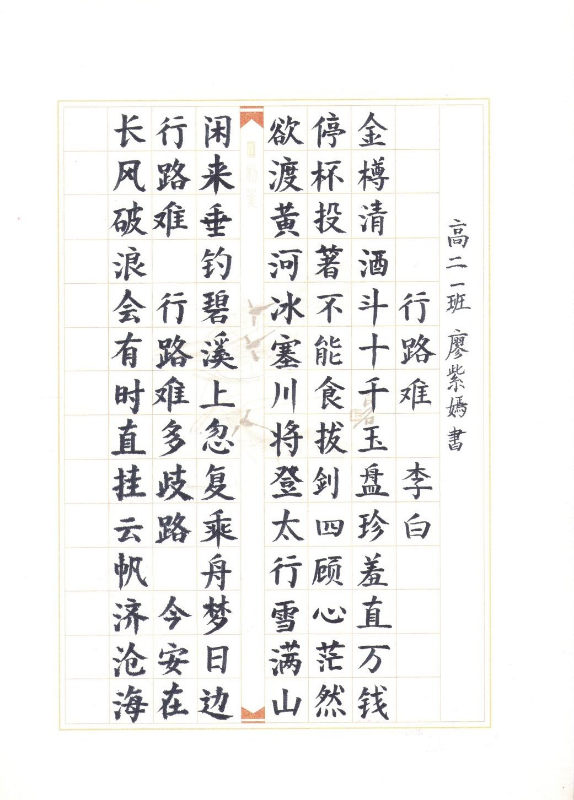 高二一班 廖紫嫣書
行路难 李白
金樽清酒斗十千玉盘珍羞直万钱
停杯投著不能食拔剑四顾心茫然
欲渡黄河冰塞川将登太行雪满山
闲来垂钓碧溪上忽复乘舟梦日边
行路难 行路难多歧路 今安在
长风破浪会有时直挂云帆济沧海